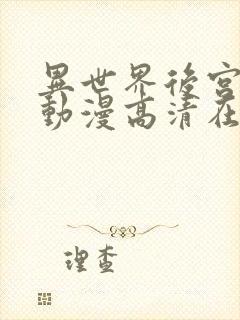 異世界後宮
動漫高清在
理查